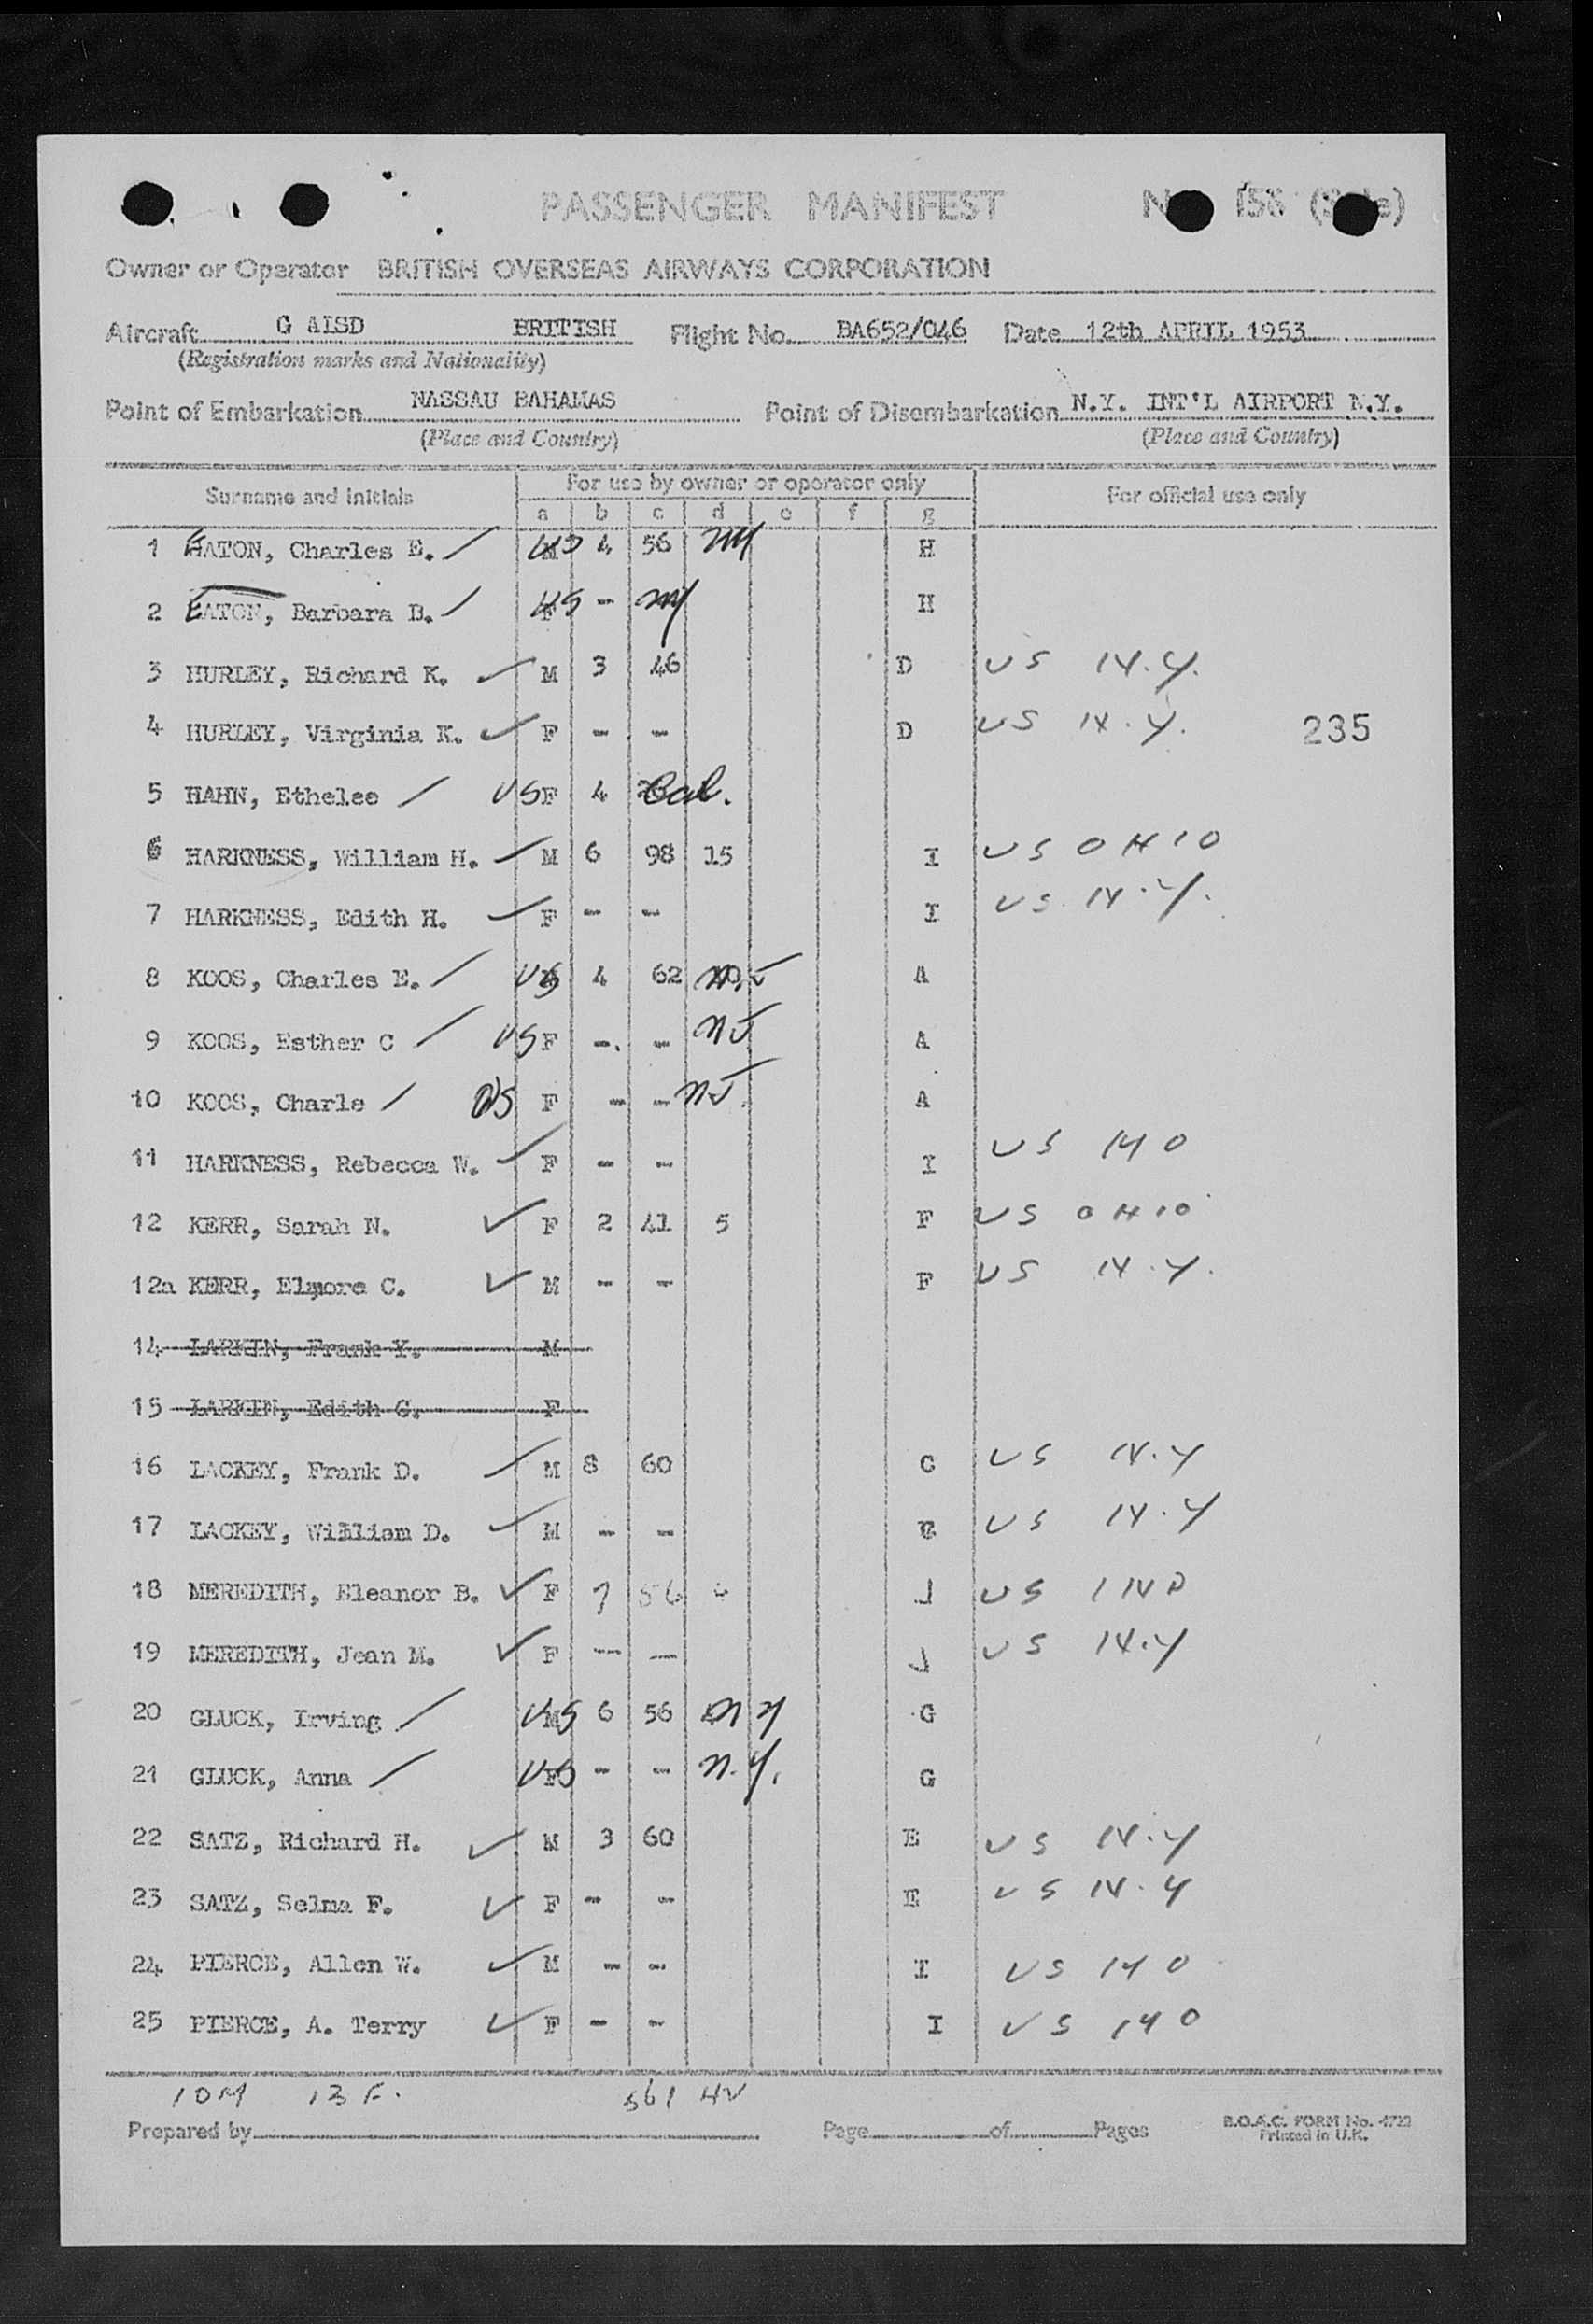 PASSENGER MANIFEST
Owner or Operator BRITISH OVERSEAS AIRWAYS CORPORATION
Aircraft G ALSD BRITISH Flight No. BA652/046 Date 12th APRIL 1953
(Registration marks and Nationality)
Point of Embarkation NASSAU BAHAMAS Point of Disembarkation N.Y. INT'L AIRPORT N.Y.
(Place and Country) (Place and Country)
Surname and Initials For use by owner or operator only For official use only
a b c d e f g
1 EATON, Charles E. US 4 56 NY H
2 EATON, Barbara B. US - NY H
3 HURLEY, Richard K. M 3 46 D US N.Y.
4 HURLEY, Virginia K. F - - D US N.Y. 235
5 HAHN, Ethelee US F 4 Cal.
6 HARKNESS, William H. M 6 98 15 I US OHIO
7 HARKNESS, Edith H. F - - I US N.Y.
8 KOOS, Charles E. US 4 62 N.J. A
9 KOOS, Esther C US F - - NJ A
10 KOOS, Charle US F - - NJ. A
11 HARKNESS, Rebecca W. F - - I US MO
12 KERR, Sarah N. F 2 41 5 F US OHIO
12a KERR, Elmore C. M - - F US N.Y.
14 LARKIN, Frank Y. M
15 LARKIN, Edith G. F
16 LACKEY, Frank D. M 8 60 C US N.Y
17 LACKEY, William D. M - - C US N.Y
18 MEREDITH, Eleanor B. F 7 56 J US IND
19 MEREDITH, Jean M. F - - J US N.Y
20 GLUCK, Irving US M 6 56 NY G
21 GLUCK, Anna US F - - N.Y. G
22 SATZ, Richard H. M 3 60 E US N.Y
23 SATZ, Selma F. F - - E US N.Y
24 PIERCE, Allen W. M - - I US MO
25 PIERCE, A. Terry F - - I US MO
10M 13F. 561
Prepared by Page of Pages B.O.A.C. FORM No. 4722
Printed in U.K.